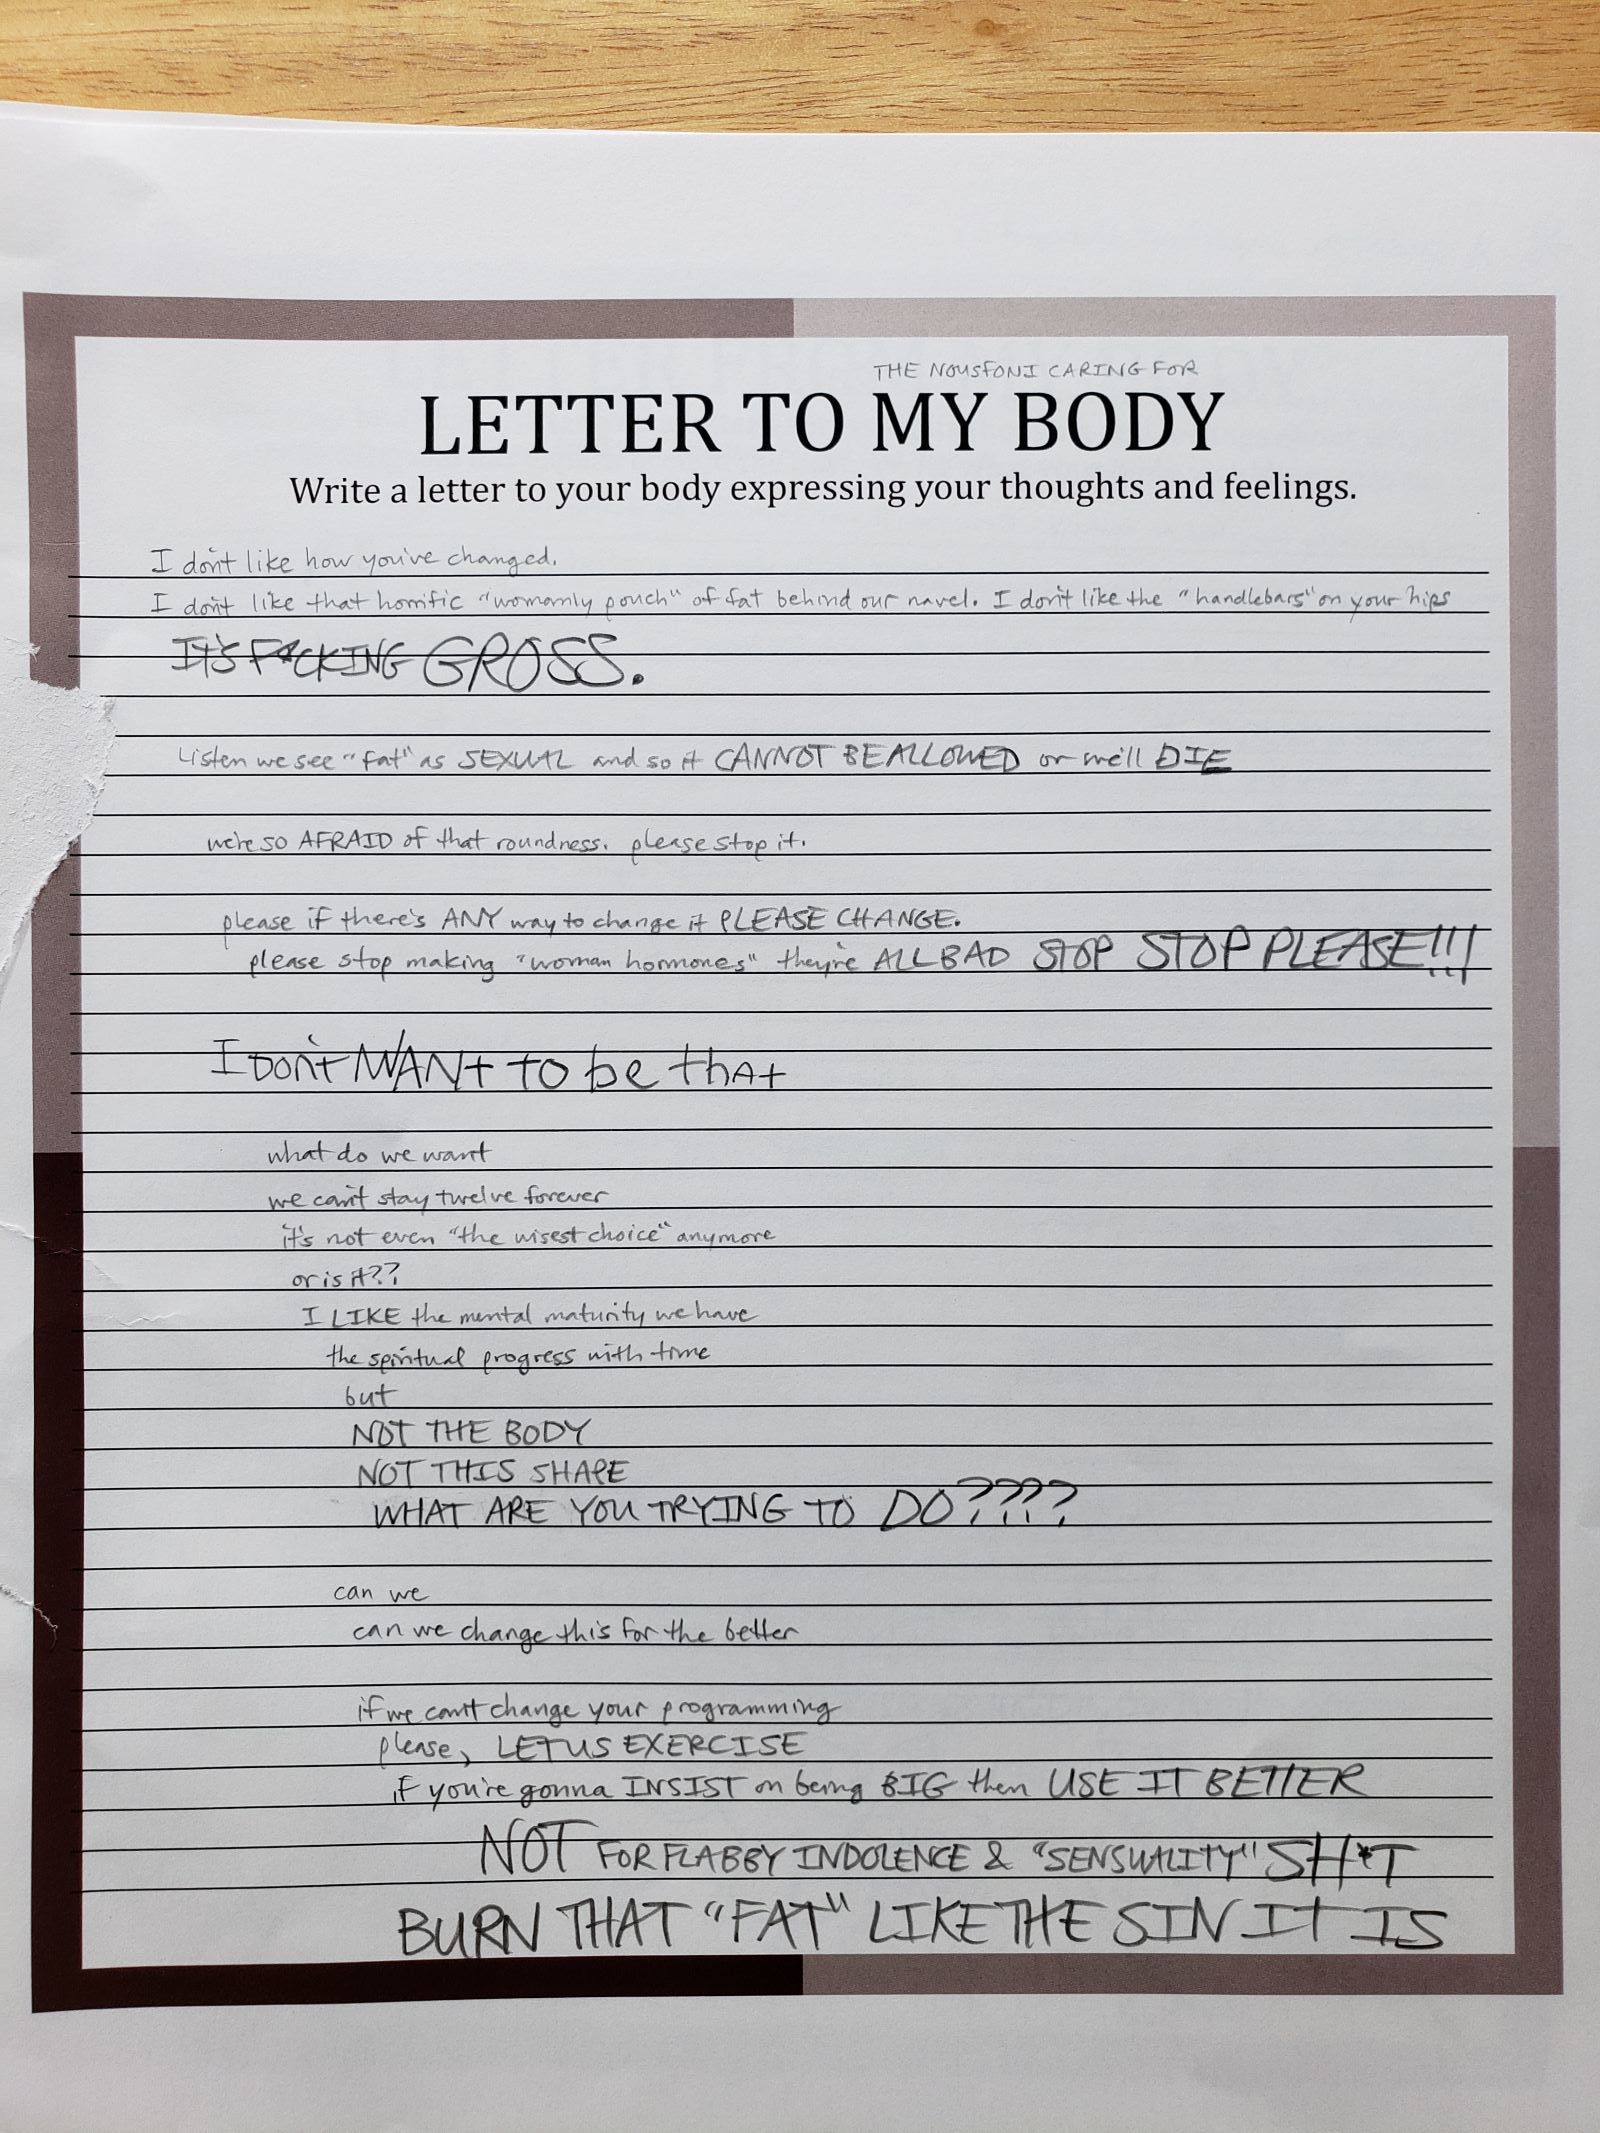 THE NOUSFONI CARING FOR
LETTER TO MY BODY
Write a letter to your body expressing your thoughts and feelings.
I don't like how you've changed.
I don't like that horrific "womanly pouch" of fat behind our navel. I don't like the "handlebars" on your hips
IT'S F*CKING GROSS.
Listen we see "fat" as SEXUAL and so it CANNOT BE ALLOWED or we'll DIE
we're so AFRAID of that roundness. please stop it.
please if there's ANY way to change it PLEASE CHANGE.
please stop making "woman hormones" they're ALL BAD STOP STOP PLEASE!!!
I DON'T WANT TO be thAt
what do we want
we can't stay twelve forever
it's not even "the wisest choice" anymore
or is it??
I LIKE the mental maturity we have
the spiritual progress with time
but
NOT THE BODY
NOT THIS SHAPE
WHAT ARE YOU TRYING TO DO????
can we
can we change this for the better
if we can't change your programming
please, LET US EXERCISE
if you're gonna INSIST on being BIG then USE IT BETTER
NOT FOR FLABBY INDOLENCE & "SENSUALITY" SH*T
BURN THAT "FAT" LIKE THE SIN IT IS